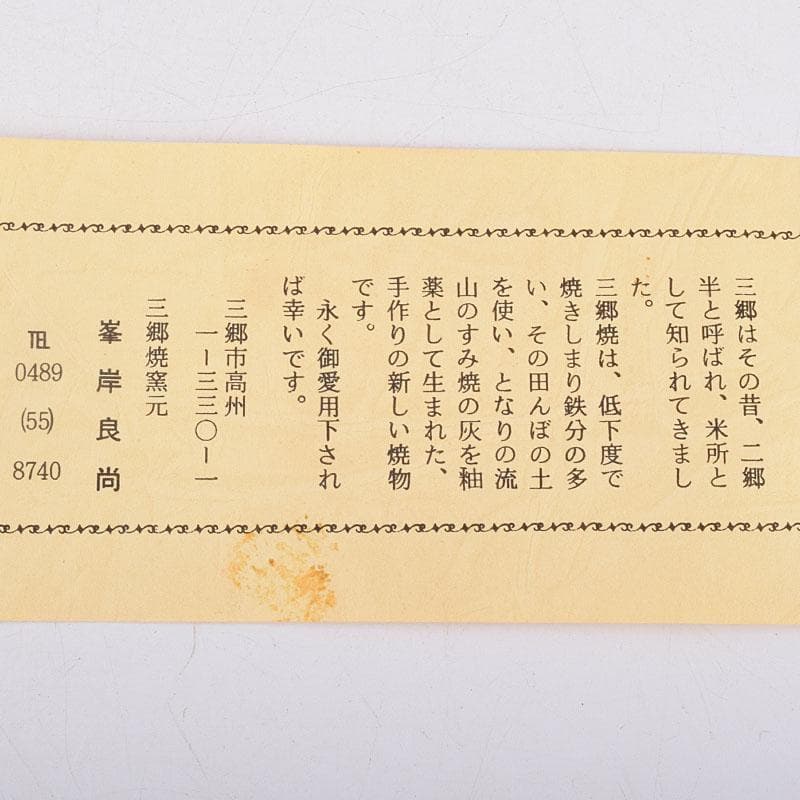 三郷はその昔、二郷
半と呼ばれ、米所と
して知られてきまし
た。
三郷焼は、低下度で
焼きしまり鉄分の多
い、その田んぼの土
を使い、となりの流
山のすみ焼の灰を釉
薬として生まれた、
手作りの新しい焼物
です。
永く御愛用下され
ば幸いです。
三郷市高州
一ー三三〇ー一
三郷焼窯元
峯岸良尚
℡ 0489 (55) 8740